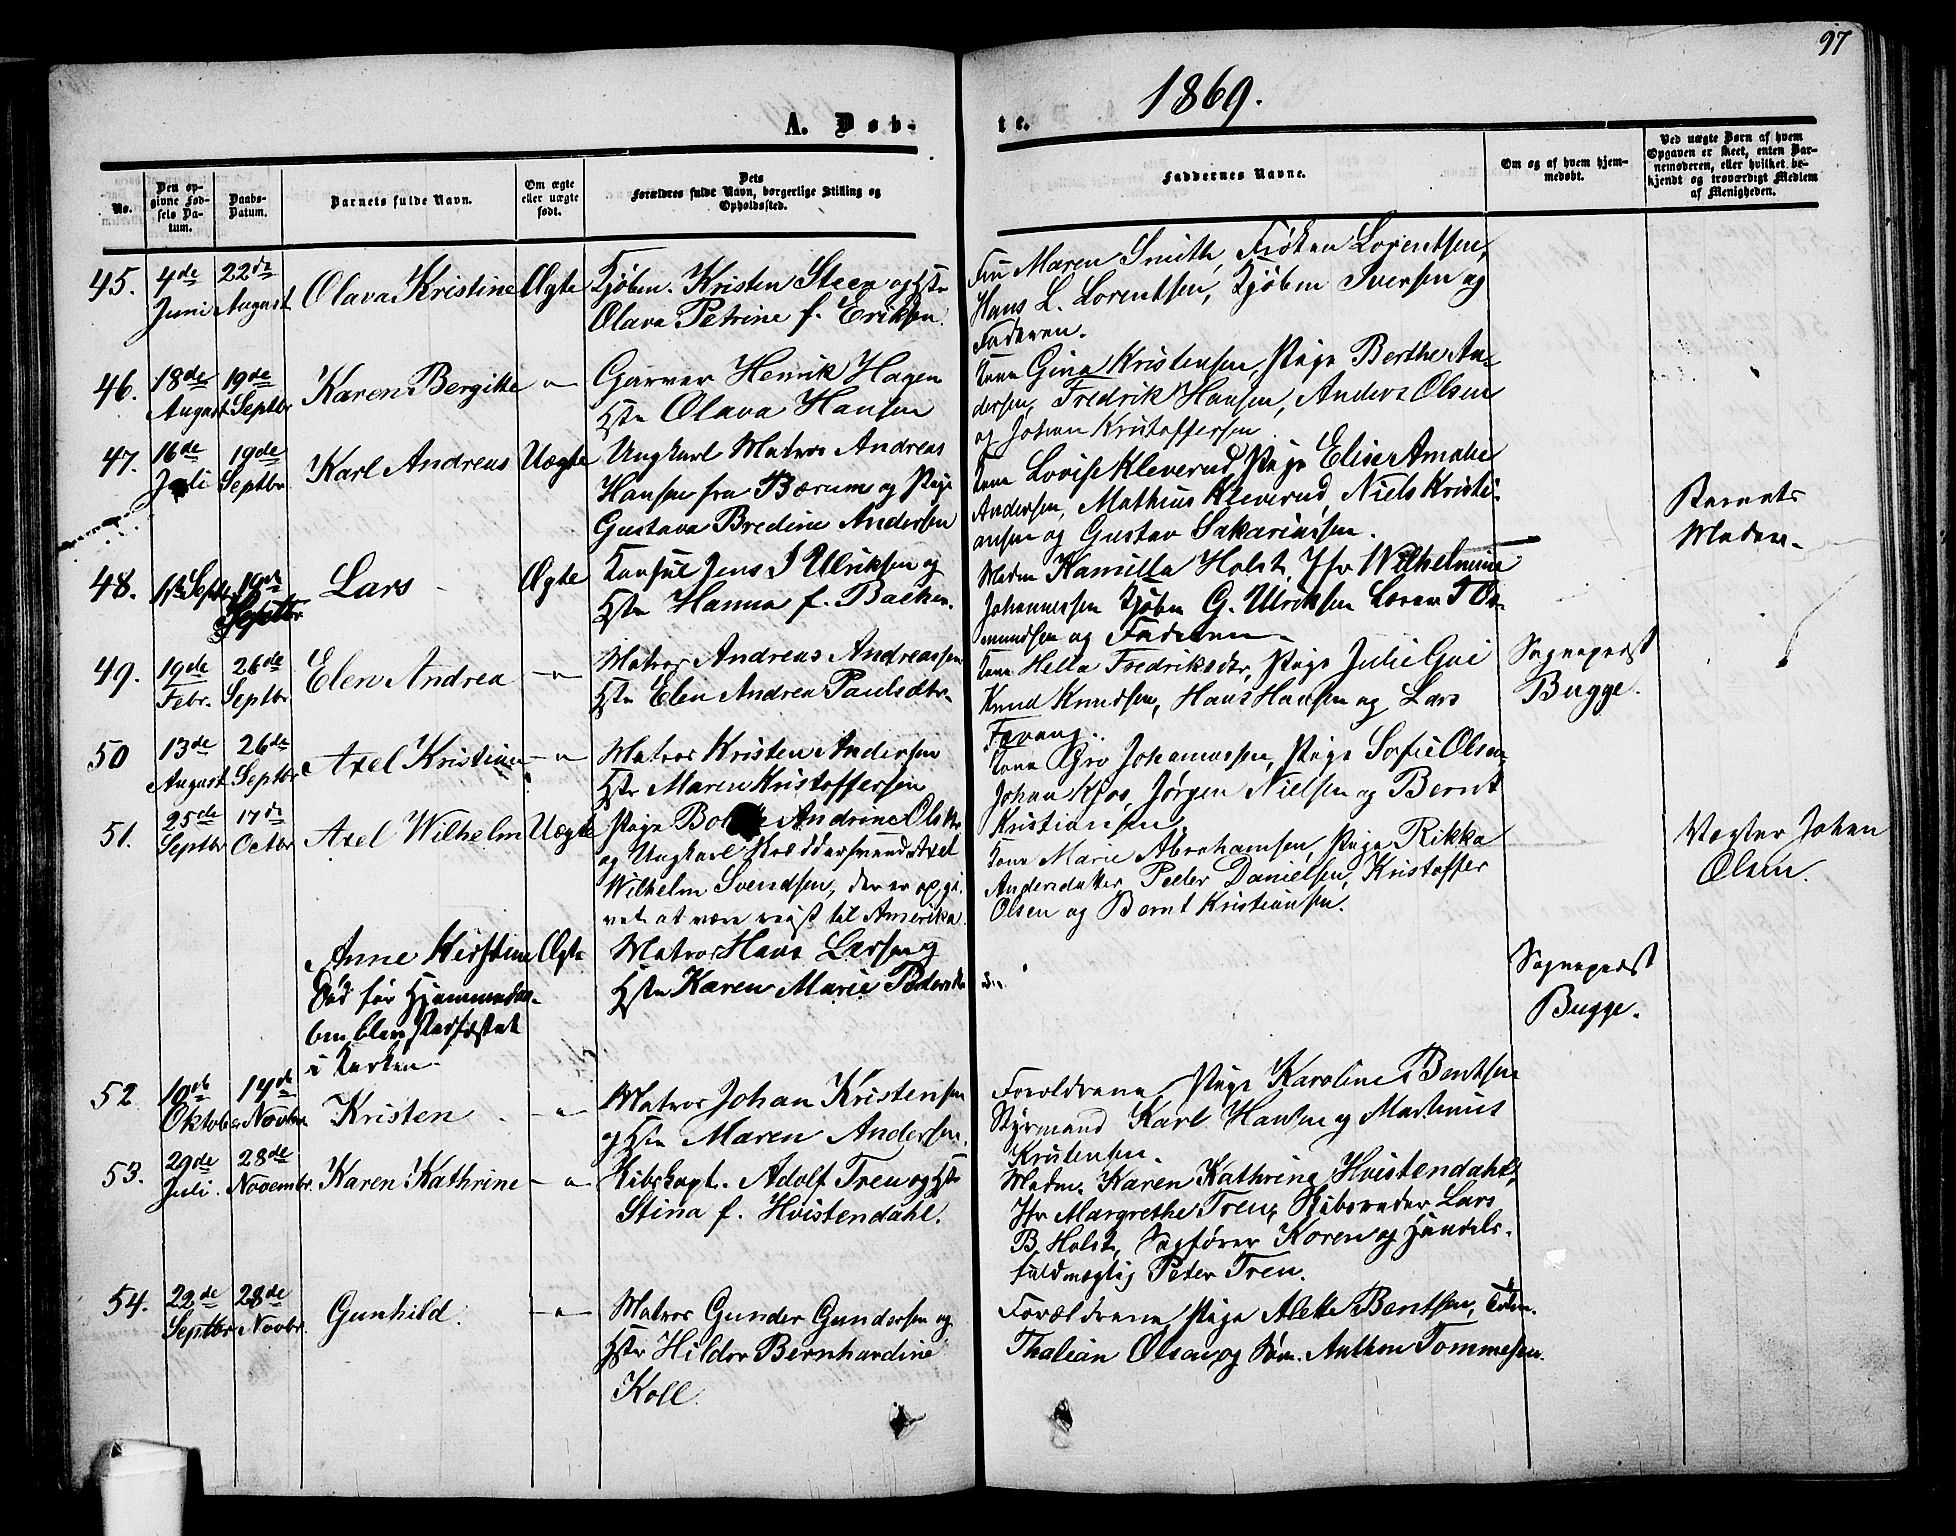 97
1869.
A. Døb-
te.
No.
Den op-
givne Fød-
sels Da-
tum.
Daabs-
Datum.
Barnets fulde Navn.
Om ægte
eller uægte
født.
Dets
Forældres fulde Navn, borgerlige Stilling og
Opholdssted.
Faddernes Navne.
Om og af hvem hjem-
medøbt.
Ved uægte Børn af hvem
Opgaven er skeet, enten Bar-
nemoderen, eller hvilket be-
kjendt og troværdigt Medlem
af Menigheden.
45.
4de
Juni
22de
August
Olava Kristine
Ægte
Kjøbm. Kristen Steen og Hstr
Olava Petrine f. Eriksen.
Fru Maren Smith, Frøken Lorentsen,
Hans L. Lorentsen, Kjøbm Iversen og
Faderen.
46.
18de
August
19de
Septbr
Karen Bergitte
-"-
Garver Henrik Hagen
Hstr Olava Hansen
Kone Gina Kristensen, Pige Berthe An-
dersen, Fredrik Hansen, Anders Olsen
og Johan Kristoffersen.
47.
16de
Juli
19de
Septbr.
Karl Andreas
Uægte
Ungkarl Matros Andreas
Hansen fra Bærum og Pige
Gustava Bredine Andersen
Kone Lovise Kleverud, Pige Elise Amalie
Andersen, Mathius Kleverud, Niels Kristi-
ansen og Gustav Sakariassen.
Barnets
Moder.
48.
Septbr
19de
Septbr
Lars
Ægte
Konsul Jens J Ulriksen og
Hstr Hanna f. Backer.
Madm Kamilla Holst, Jfr Wilhelmine
Johannessen Kjøbm G. Ulriksen Lærer T Os-
mundsen og Faderen
49.
19de
Febr.
26de
Septbr
Elen Andrea
-"-
Matros Andreas Andreassen
Hstr Elen Andrea Paulsdtr.
Kone Hella Fredriksdtr, Pige Julie
Knud Knudsen, Hans Hansen og Lars
Sognepræst
Bugge.
50
13de
August
26de
Septbr
Axel Kristian
-"-
Matros Kristen Andersen
Hstr Maren Kristoffersen
Kone Gro Johannessen, Pige Sofie Olsen,
Johan Kjos, Jørgen Nielsen og Bernt
Kristiansen
51.
25de
Septbr
17de
Octbr
Axel Wilhelm
Uægte
Pige Andrine Olsdtr
og Ungkarl Skreddersvend Axel
Wilhelm Svendsen, der er opgi-
vet at være reist til Amerika.
Kone Marie Abrahamsen, Pige Rikka
Andersdatter, Peder Danielsen, Kristoffer
Olsen og Bernt Kristiansen.
Vægter Johan
Olsen.
Anne Kirstine
Død før Hjemmedaa-
ben blev stadfæstet
i Kirken.
Ægte
Matros Hans Larsen og
Hstr Karen Marie Pedersdtr
Sognepræst
Bugge.
52
10de
Oktober
14de
Novbr
Kristen
-"-
Matros Johan Kristensen
og Hstr Maren Andersen.
Forældrene, Pige Karoline Bentsen
Styrmand Karl Hansen og Mathius
Kristensen.
53.
29de
Juli.
28de
Novembr.
Karen Kathrine
-"-
Skibskapt. Adolf Treu og Hstr
Stina f. Hvistendahl.
Madm. Karen Kathrine Hvistendahl,
Jfr Margrethe Treu, Skibsreder Lars
B. Holst, Sagfører Koren og Handels-
fuldmægtig Peter Treu.
54.
22de
Septbr
28de
Novbr.
Gunhild.
-"-
Matros Gunder Gundersen og
Hstr Hilda Bernhardine
Koll.
Forældrene, Pige Alette Bentsen,
Thalian Olsen og Søm. Anthon Tommesen.